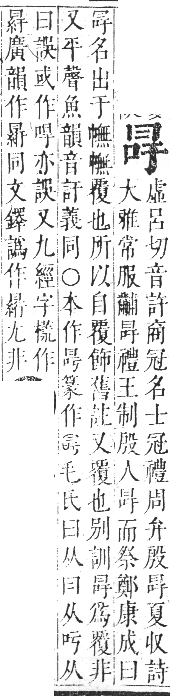 冔虛呂切音許商冠名士冠禮周弁殷冔夏收詩
大雅常服黼冔禮王制殷人冔而祭鄭康成曰
冔名出于幠幠覆也所以自覆飾舊註又覆也别訓冔爲覆非
又平聲魚韻音訏義同○本作㝵篆作毛氏曰从曰从吁从
曰誤或作哻亦誤又九經字㨾作
冔廣韻作冔同文鐸譌作冔尢非